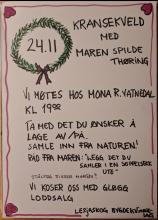 24.11
KRANSEKVELD
MED
MAREN SPILDE
THØRING
VI MØTES HOS MONA R. VATNEDAL
KL 19⁰⁰
TA MED DET DU ØNSKER Å
LAGE AV/PÅ.
SAMLE INN FRA NATUREN!
RÅD FRA MAREN: "LEGG DET DU
SAMLER I EN SØPPELSEKK
UTE"
VI KOSER OSS MED GLØGG
LODDSALG
LESJASKOG BYGDEKVINNELAG